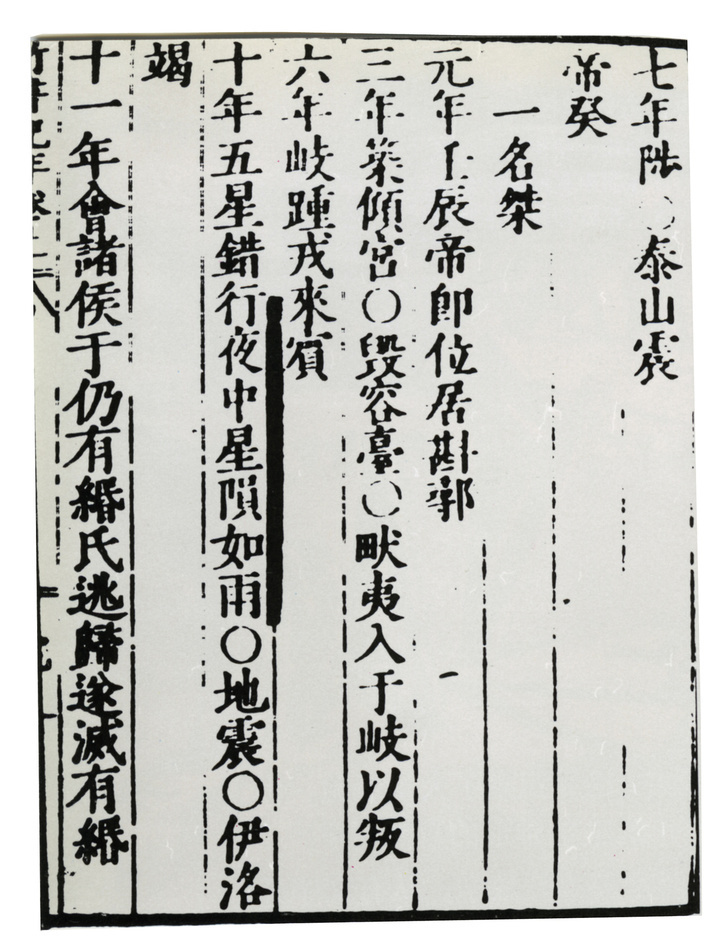 七年陟〇泰山震
帝癸
一名桀
元年壬辰帝即位居斟鄩
三年築傾宮〇毀容臺〇畎夷入于岐以叛
六年岐踵戎來賓
十年五星錯行夜中星隕如雨〇地震〇伊洛
竭
十一年會諸侯于仍有緡氏逃歸遂滅有緡
竹書紀年卷上